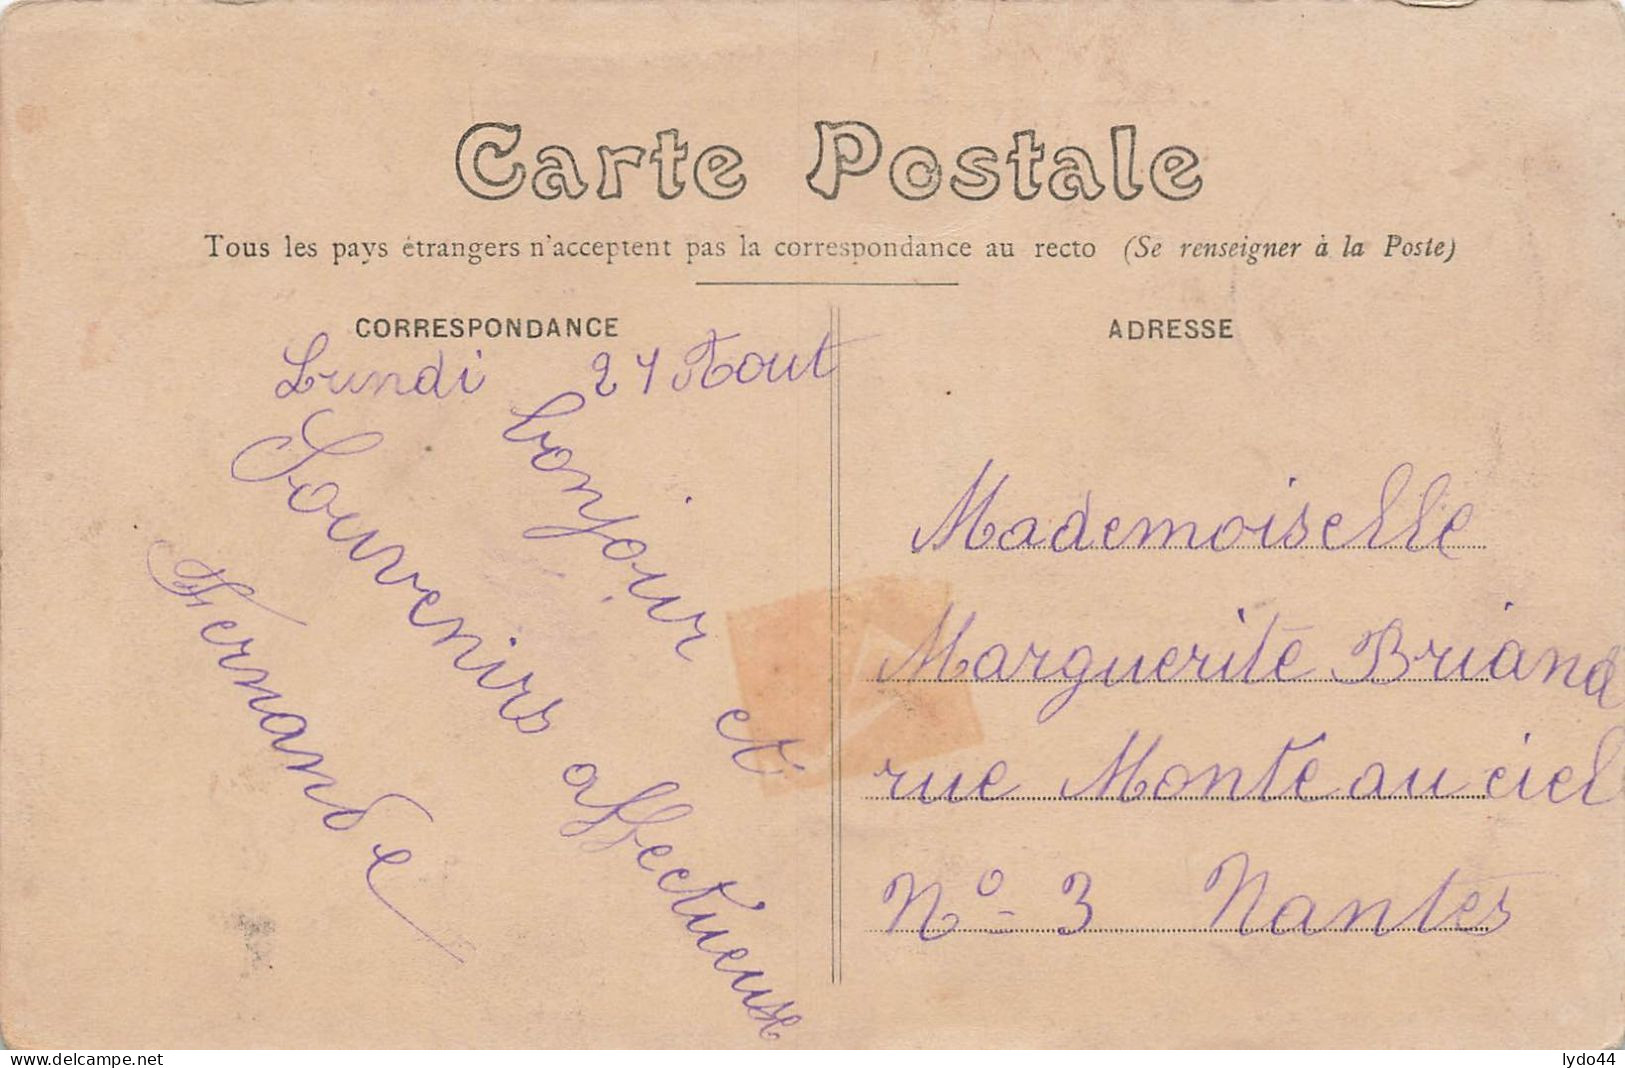 Carte Postale
Tous les pays étrangers n'acceptent pas la correspondance au recto (Se renseigner à la Poste)
CORRESPONDANCE
Lundi 21 Aout
bonjour et
Souvenirs affectueuse
Fernande
ADRESSE
Mademoiselle
Marguerite Briand
rue Monte au ciel
No 3 Nantes
delcampe.net
lydo44